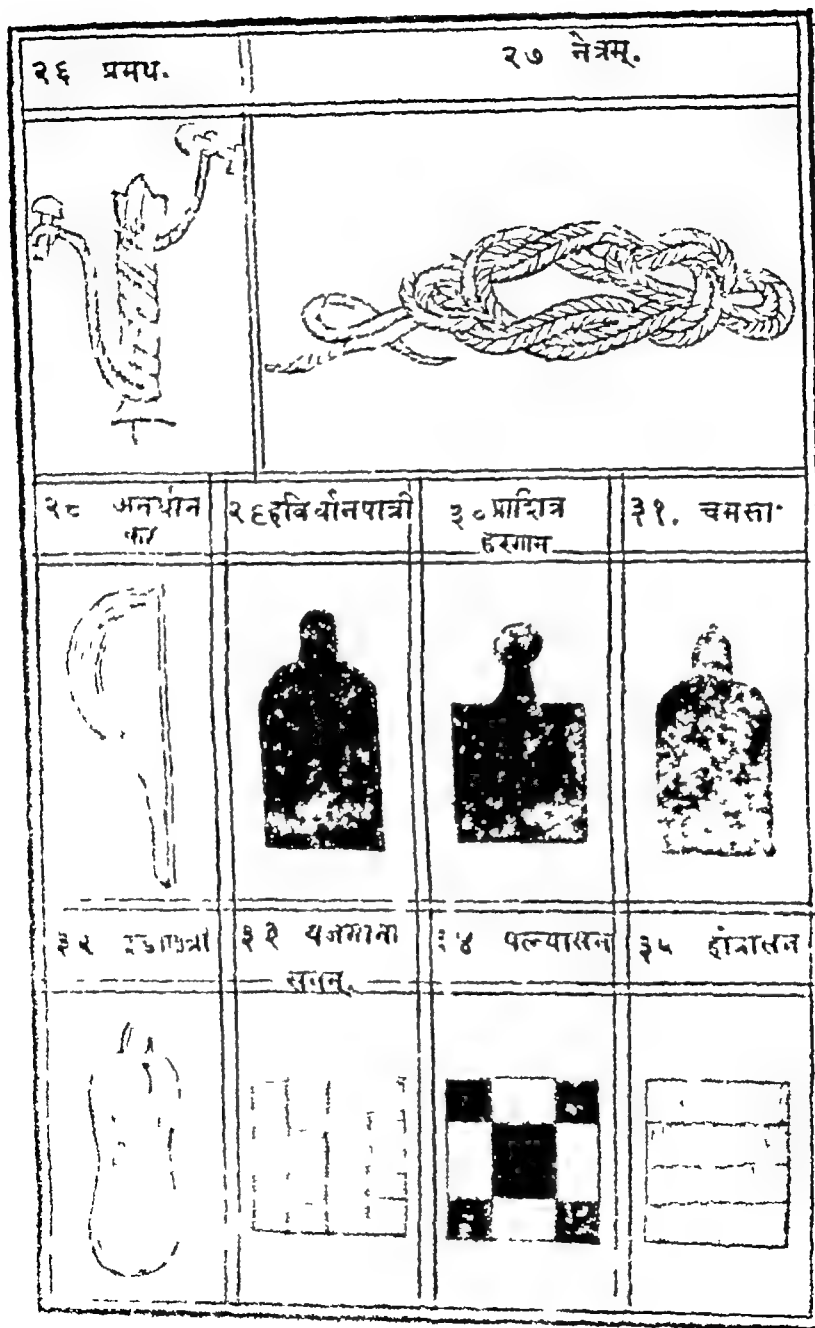 २६ प्रमथ.
२७ नेत्रम्.
२८ अनर्धान
२९ हविर्धानपात्री
३० प्राशित्र
हरणम
३१. चमसा.
३२
३३ यजमाना
सनम्.
३४ पत्न्यासन
३५ होत्रासन